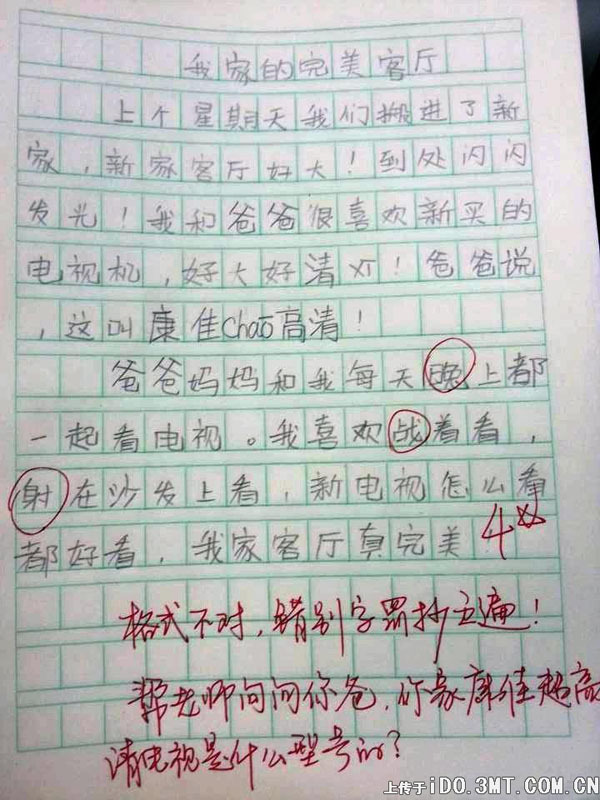 我家的完美客厅
上个星期天我们搬进了新
家，新家客厅好大！到处闪闪
发光！我和爸爸很喜欢新买的
电视机，好大好清 ！爸爸说
，这叫康佳Chāo高清！
爸爸妈妈和我每天晚上都
一起看电视。我喜欢战着看，
射在沙发上看，新电视怎么看
都好看，我家客厅真完美
4
格式不对，错别字罚抄五遍！
帮老师问问你爸，你家康佳超高
清电视是什么型号的？
上传于 iDO.3MT.COM.CN